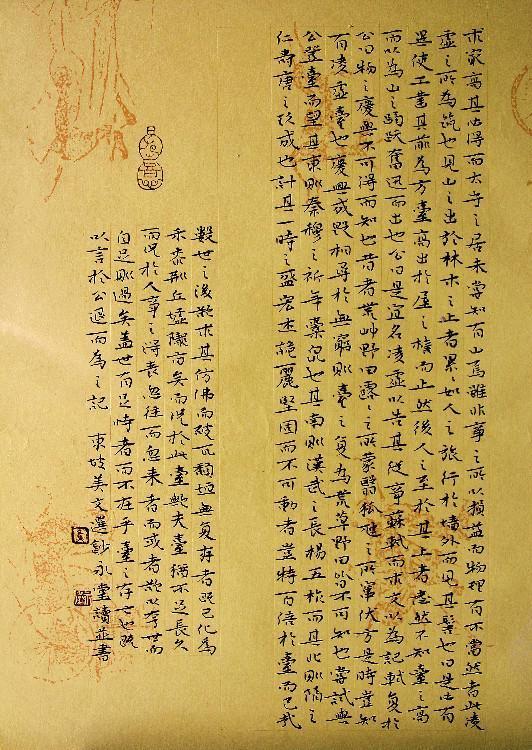 求最高其必得而太守之居未嘗知有山焉雖非事之所以損益而物理有不當然者此凌
虛之所為筑也見山之出於林木之上者累々如人之旅行於墻外而見其髻也曰是必有
異使工鑿其前為方臺高出於屋之檐而止然後人之至於其上者恍然不知臺之高
而以為山之踴躍奮迅而出也公曰是宜名凌虛以告其從事蘇軾而求文以為記軾復於
公曰物之廢興不可得而知也昔者荒艸野田露之所蒙翳狐虺之所竄伏方是時豈知
有凌虛臺也廢興成毀相尋於無窮則臺之复為荒草野田皆不可知也嘗試與
公登臺而望其東則秦穆之祈年橐泉也其南則漢武之長楊五柞而其北則隋之
仁壽唐之玖成也計其一時之盛宏杰詭麗堅固而不可動者豈特百倍於臺而已哉
數世之後欲求其仿佛而破瓦頹垣無复存者既已化為
禾黍荊丘墟隴畝矣而况於此臺歟夫臺猶不足長久
而况於人事之得喪忽往而忽来者而或者欲以夸世而
自足則過矣盖世有足恃者而不在乎臺之存亡也既
以言於公退而為之記 東坡美文選鈔永堂讀並書